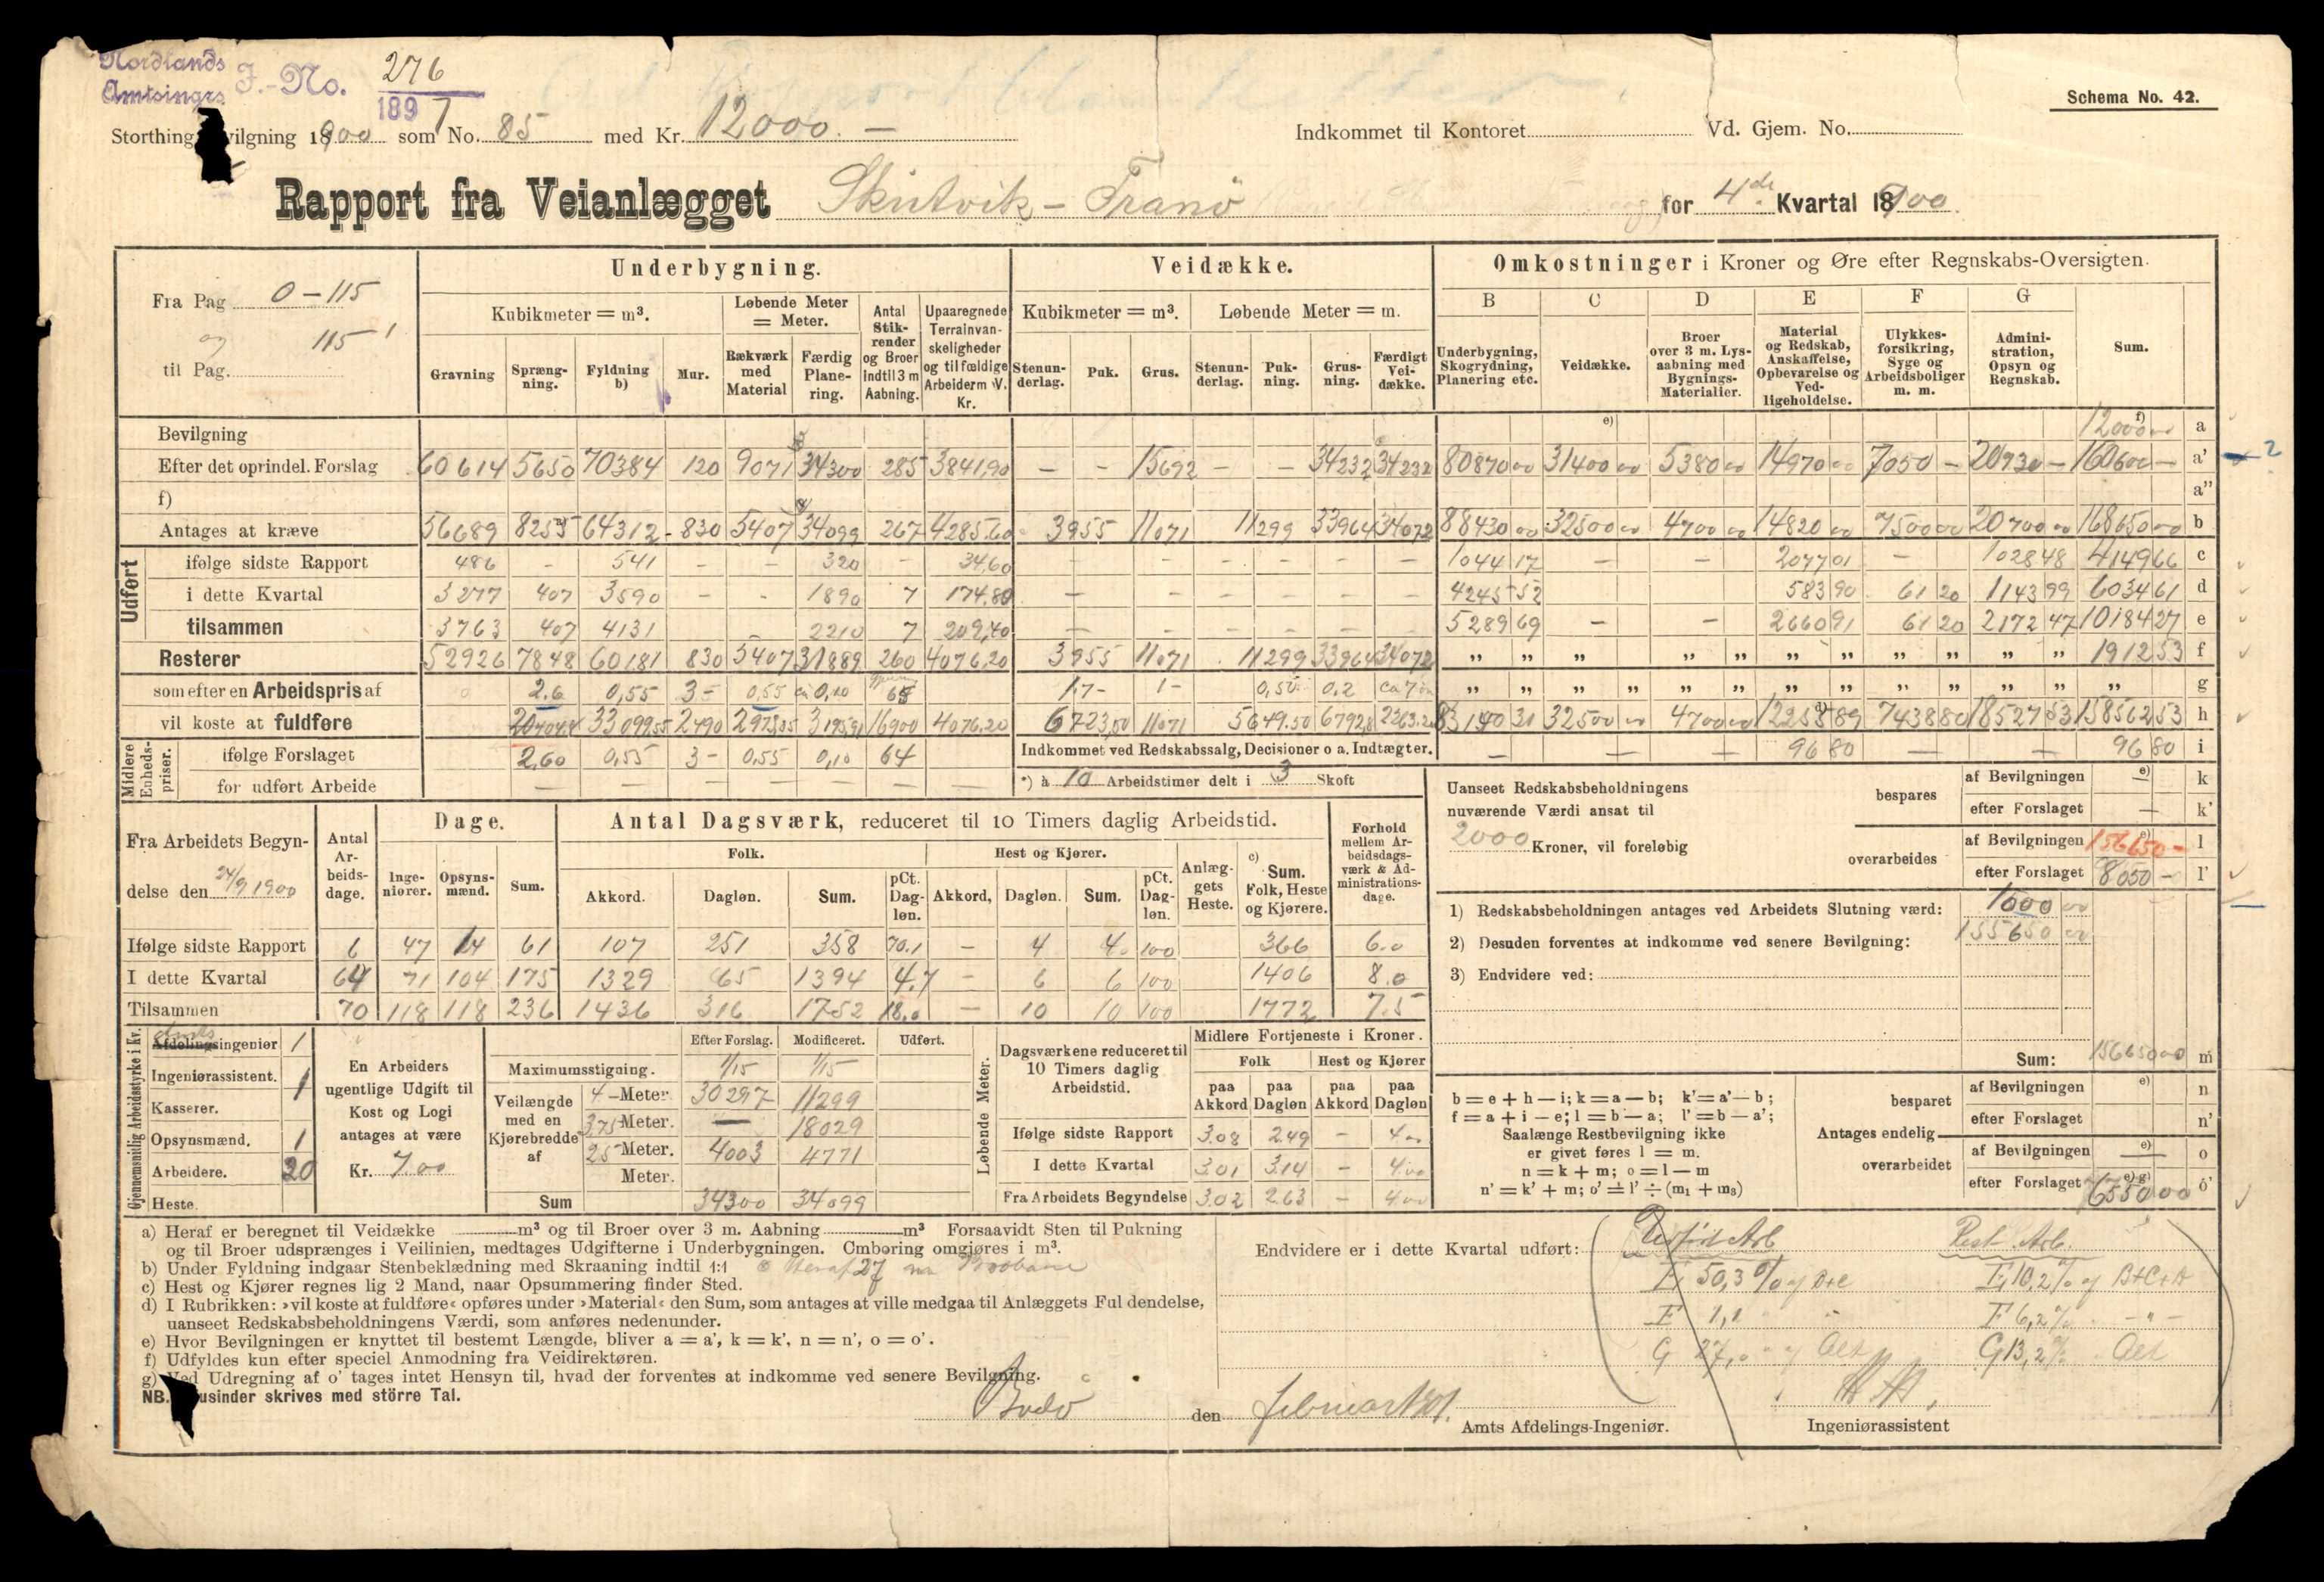 Nordlands
Amtsingrs J.-No. 276
1897
Schema No. 42.
Storthing vilgning 1900 som No. 85 med Kr. 12000. —
Indkommet til Kontoret Vd. Gjem. No.
Rapport fra Veianlægget Skutvik - Tranö for 4de Kvartal 1900
Fra Pag 0 - 115
og 115
til Pag.
Underbygning.
Kubikmeter = m³.
Løbende Meter = Meter.
Gravning
Sprængning.
Fyldning b)
Mur.
Rækværk med Material
Færdig Planering.
Antal Stikrender og Broer indtil 3 m Aabning.
Upaaregnede Terrainvanskeligheder og tilfældige Arbeiderm. V. Kr.
Veidække.
Kubikmeter = m³.
Løbende Meter = m.
Stenunderlag.
Puk.
Grus.
Stenunderlag.
Pukning.
Grusning.
Færdigt Veidække.
Omkostninger i Kroner og Øre efter Regnskabs-Oversigten.
B Underbygning, Skogrydning, Planering etc.
C Veidække.
D Broer over 3 m. Lysaabning med Bygnings-Materialier.
E Material og Redskab, Anskaffelse, Opbevarelse og Vedligeholdelse.
F Ulykkesforsikring, Syge og Arbeidsboliger m. m.
G Administration, Opsyn og Regnskab.
Sum.
Bevilgning e) f) 12000 00 a
Efter det oprindel. Forslag 60614 5650 70384 120 9071 34300 285 3841,90 — - 15692 - - 34232 34232 80870 00 31400 00 5380 00 14970 00 7050 — 20930 — 160600 — a' ?
f) a''
Antages at kræve 56689 8255 64312 830 5407 34099 267 4285,60 3955 11071 11299 33964 34072 88430 00 32500 00 4700 00 14820 00 7500 00 20700 00 168650 00 b
Udført
ifølge sidste Rapport 486 - 541 - - 320 - 34,60 - - - - - - 1044 17 - - 2077 01 - 1028 48 4149 66 c
i dette Kvartal 3277 407 3590 - - 1890 7 174,80 - - - - - - 4245 52 583 90 61 20 1143 99 6034 61 d
tilsammen 3763 407 4131 2210 7 209,40 - - - - - - 5289 69 - - 2660 91 61 20 2172 47 10184 27 e
Resterer 52926 7848 60181 830 5407 31889 260 4076,20 3955 11071 11299 33964 34072 „ „ „ „ „ „ „ „ „ „ „ 1912 53 f
som efter en Arbeidspris af 2.6 0,55 3- 0,55 0,10 65 1,7- 1- 0,50 0.2 ca 7 „ „ „ „ „ „ „ „ „ „ „ „ „ g
vil koste at fuldføre 20404,8 33099,55 2490 2973,85 3195,90 16900 4076,20 6723,50 11071 5649.50 6792,8 2263.20 83140 31 32500 00 4700 00 12258 89 7438 80 18527 53 158562 53 h
Midlere Enhedspriser.
ifølge Forslaget 2.60 0,55 3- 0,55 0,10 64
Indkommet ved Redskabssalg, Decisioner o a. Indtægter. — — — 96 80 — — 96 80 i
for udført Arbeide — — — — —
*) à 10 Arbeidstimer delt i 3 Skoft
Uanseet Redskabsbeholdningens
nuværende Værdi ansat til
2000 Kroner, vil foreløbig
bespares
af Bevilgningen e) — k
efter Forslaget — k'
overarbeides
af Bevilgningen e) 156650 - l
efter Forslaget 8050 - l'
Fra Arbeidets Begyndelse den 24/9 1900
Antal Arbeidsdage.
Dage.
Ingeniører.
Opsynsmænd.
Sum.
Antal Dagsværk, reduceret til 10 Timers daglig Arbeidstid.
Folk.
Akkord.
Dagløn.
Sum.
pCt. Dagløn.
Hest og Kjører.
Akkord,
Dagløn.
Sum.
pCt. Dagløn.
Anlæggets Heste.
c) Sum. Folk, Heste og Kjørere.
Forhold mellem Arbeidsdagsværk & Administrationsdage.
Ifølge sidste Rapport 6 47 14 61 107 251 358 70.1 - 4 4 100 366 6.0
I dette Kvartal 64 71 104 175 1329 65 1394 4.7 - 6 6 100 1406 8.0
Tilsammen 70 118 118 236 1436 316 1752 18.0 - 10 10 100 1772 7.5
1) Redskabsbeholdningen antages ved Arbeidets Slutning værd: 1600 00
2) Desuden forventes at indkomme ved senere Bevilgning: 155650 00
3) Endvidere ved:
Sum: 156650 00 m
Gjennemsnitlig Arbeidsstyrke i Kv.
Afdelingsingeniør 1
Ingeniørassistent. 1
Kasserer.
Opsynsmænd. 1
Arbeidere. 20
Heste.
En Arbeiders
ugentlige Udgift til
Kost og Logi
antages at være
Kr. 7.00
Efter Forslag. Modificeret. Udført.
Maximumsstigning. 1/15 1/15
Veilængde med en Kjørebredde af
4 - Meter. 30297 11299
3,75 Meter. — 18029
2.5 Meter. 4003 4771
Meter.
Sum 34300 34099
Løbende Meter.
Dagsværkene reduceret til 10 Timers daglig Arbeidstid.
Midlere Fortjeneste i Kroner.
Folk
Hest og Kjører
paa Akkord
paa Dagløn
paa Akkord
paa Dagløn
Ifølge sidste Rapport 3.08 2.49 - 4.00
I dette Kvartal 3.01 3.14 - 4.00
Fra Arbeidets Begyndelse 3.02 2.63 - 4.00
b = e + h — i; k = a — b; k' = a' — b;
f = a + i — e; l = b — a; l' = b — a';
Saalænge Restbevilgning ikke
er givet føres l = m.
n = k + m; o = l — m
n' = k' + m; o' = l' ÷ (m₁ + m₃)
Antages endelig
besparet
af Bevilgningen e) n
efter Forslaget n'
overarbeidet
af Bevilgningen e) — o
efter Forslaget e) g) 6550 00 o'
a) Heraf er beregnet til Veidække m³ og til Broer over 3 m. Aabning m³ Forsaavidt Sten til Pukning
og til Broer udsprænges i Veilinien, medtages Udgifterne i Underbygningen. Omboring omgjøres i m³.
b) Under Fyldning indgaar Stenbeklædning med Skraaning indtil 1:1
c) Hest og Kjører regnes lig 2 Mand, naar Opsummering finder Sted.
d) I Rubrikken: »vil koste at fuldføre« opføres under »Material« den Sum, som antages at ville medgaa til Anlæggets Ful dendelse,
uanseet Redskabsbeholdningens Værdi, som anføres nedenunder.
e) Hvor Bevilgningen er knyttet til bestemt Længde, bliver a = a', k = k', n = n', o = o'.
f) Udfyldes kun efter speciel Anmodning fra Veidirektøren.
g) Ved Udregning af o' tages intet Hensyn til, hvad der forventes at indkomme ved senere Bevilgning.
NB. usinder skrives med större Tal.
Endvidere er i dette Kvartal udført:
Udført Arb Rest Arb.
E 50,3 % af B+C E 10,2 % af B+C+D
F 1,1 " " F 6,2 % - " -
G 27,0 G 13,2 %
Bodö den februar 1901.
Amts Afdelings-Ingeniør.
Ingeniørassistent